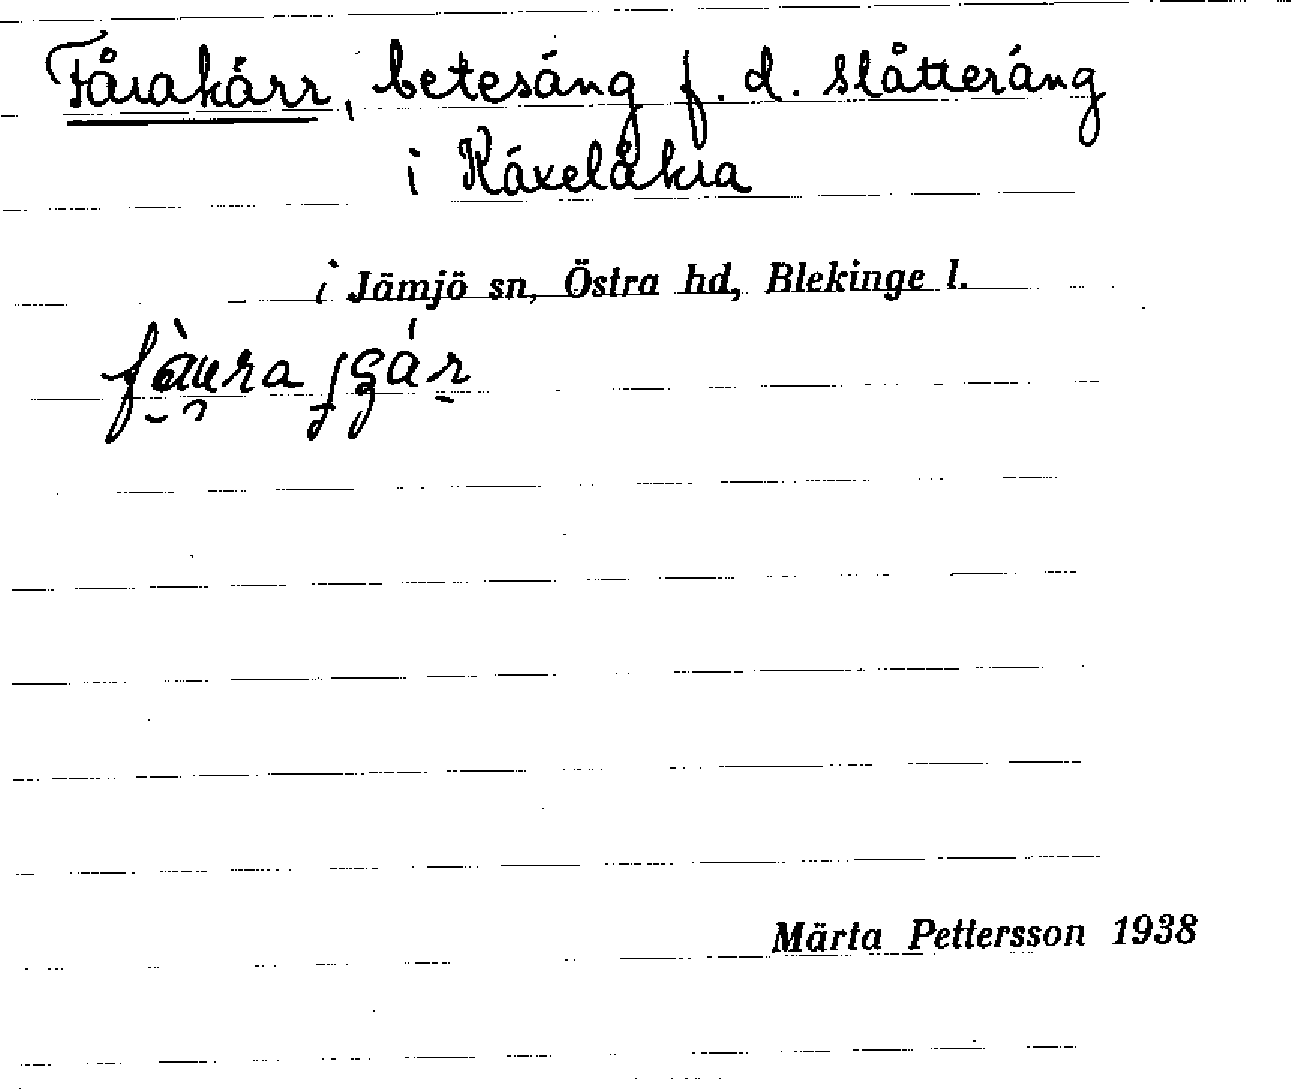 Fårakärr, betesäng f. d. slåtteräng
i Käxelåkra
i Jämjö sn, Östra hd, Blekinge l.
Märta Pettersson 1938